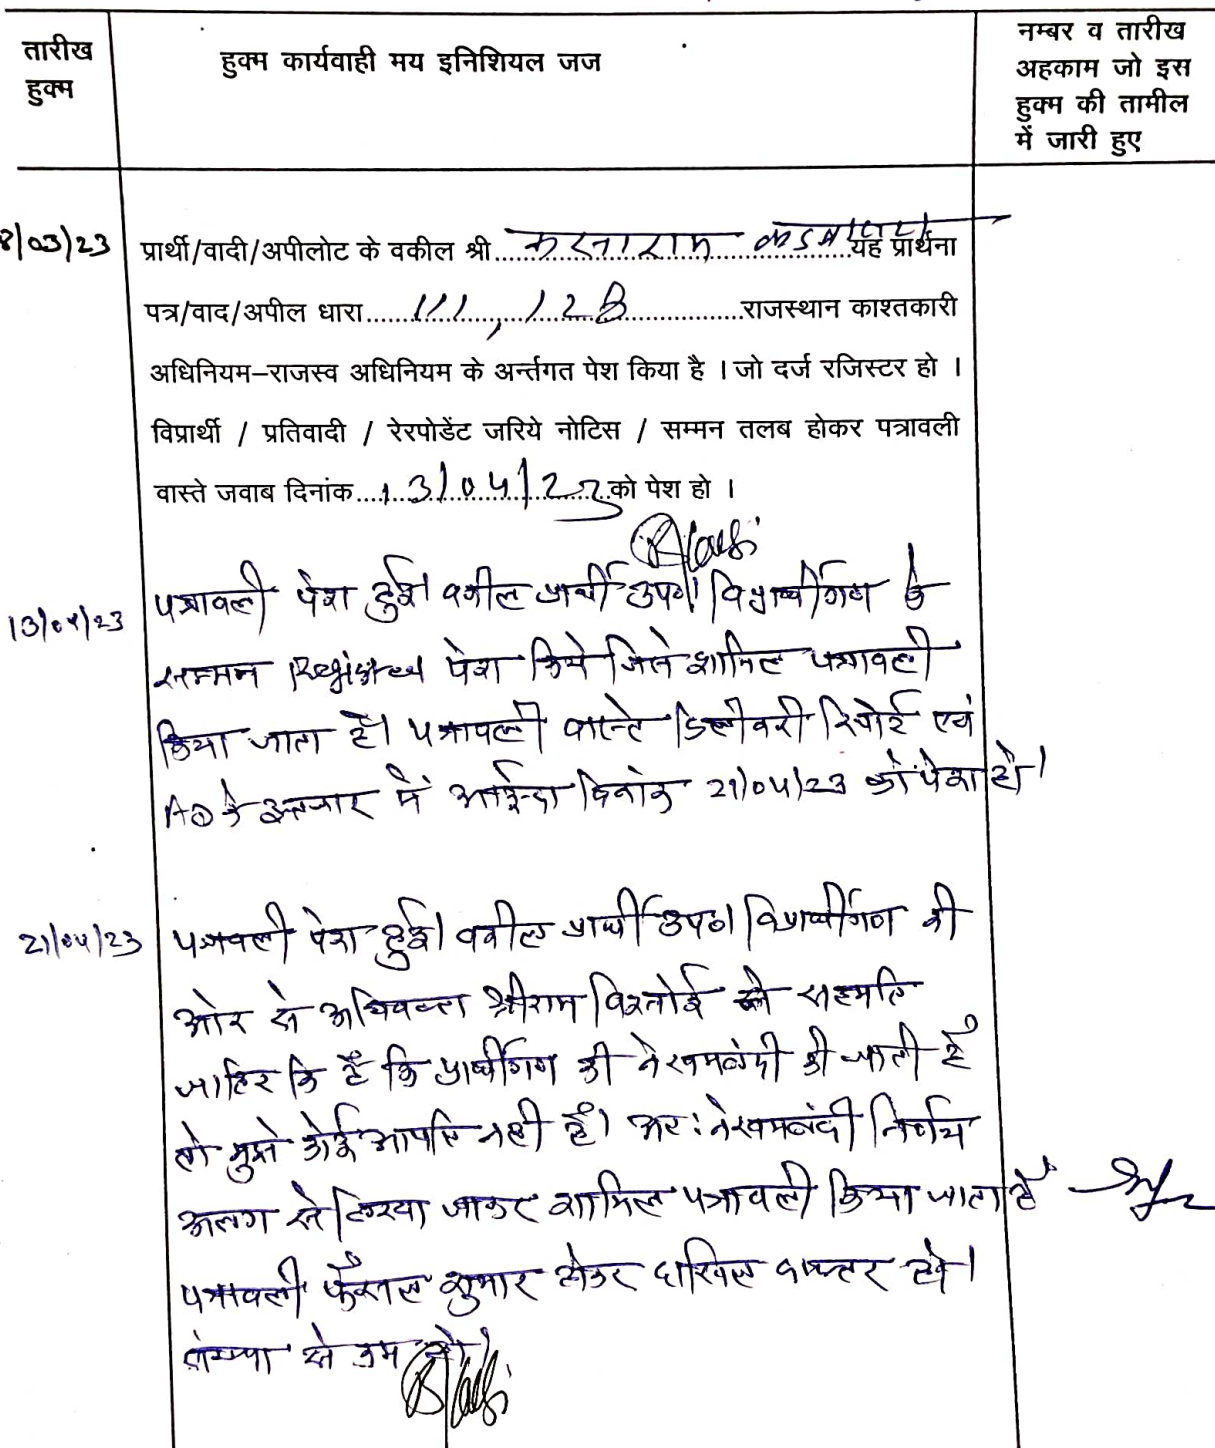 तारीख हुक्म
हुक्म कार्यवाही मय इनिशियल जज
नम्बर व तारीख
अहकाम जो इस
हुक्म की तामील
में जारी हुए
8/03/23 प्रार्थी/वादी/अपीलोट के वकील श्री करनाराम यह प्रार्थना
पत्र/वाद/अपील धारा 111, 128 राजस्थान काश्तकारी
अधिनियम–राजस्व अधिनियम के अर्न्तगत पेश किया है । जो दर्ज रजिस्टर हो ।
विप्रार्थी / प्रतिवादी / रेरपोडेंट जरिये नोटिस / सम्मन तलब होकर पत्रावली
वास्ते जवाब दिनांक 13/04/23 को पेश हो ।
13/04/23 पत्रावली पेश हुई। वकील प्रार्थी उप०। विप्रार्थीगण के
सम्मन Registred पेश किये जिसे शामिल पत्रावली
किया जाता है। पत्रावली वास्ते डिलीवरी रिपोर्ट एवं
AD के इन्तजार में आईन्दा दिनांक 21/04/23 को पेश हो।
21/04/23 पत्रावली पेश हुई। वकील प्रार्थी उप०। विप्रार्थीगण की
ओर से अधिवक्ता श्रीराम विश्नोई ने सहमति
जाहिर कि है कि प्रार्थीगण की नेखमबंदी की जाती है
तो मुझे कोई आपति नही है। अत: नेखमबंदी निर्णय
अलग से लिखा जाकर शामिल पत्रावली किया जाता है
पत्रावली फैसल शुमार होकर दाखिल दफ्तर होवे।
संख्या से कम हो।